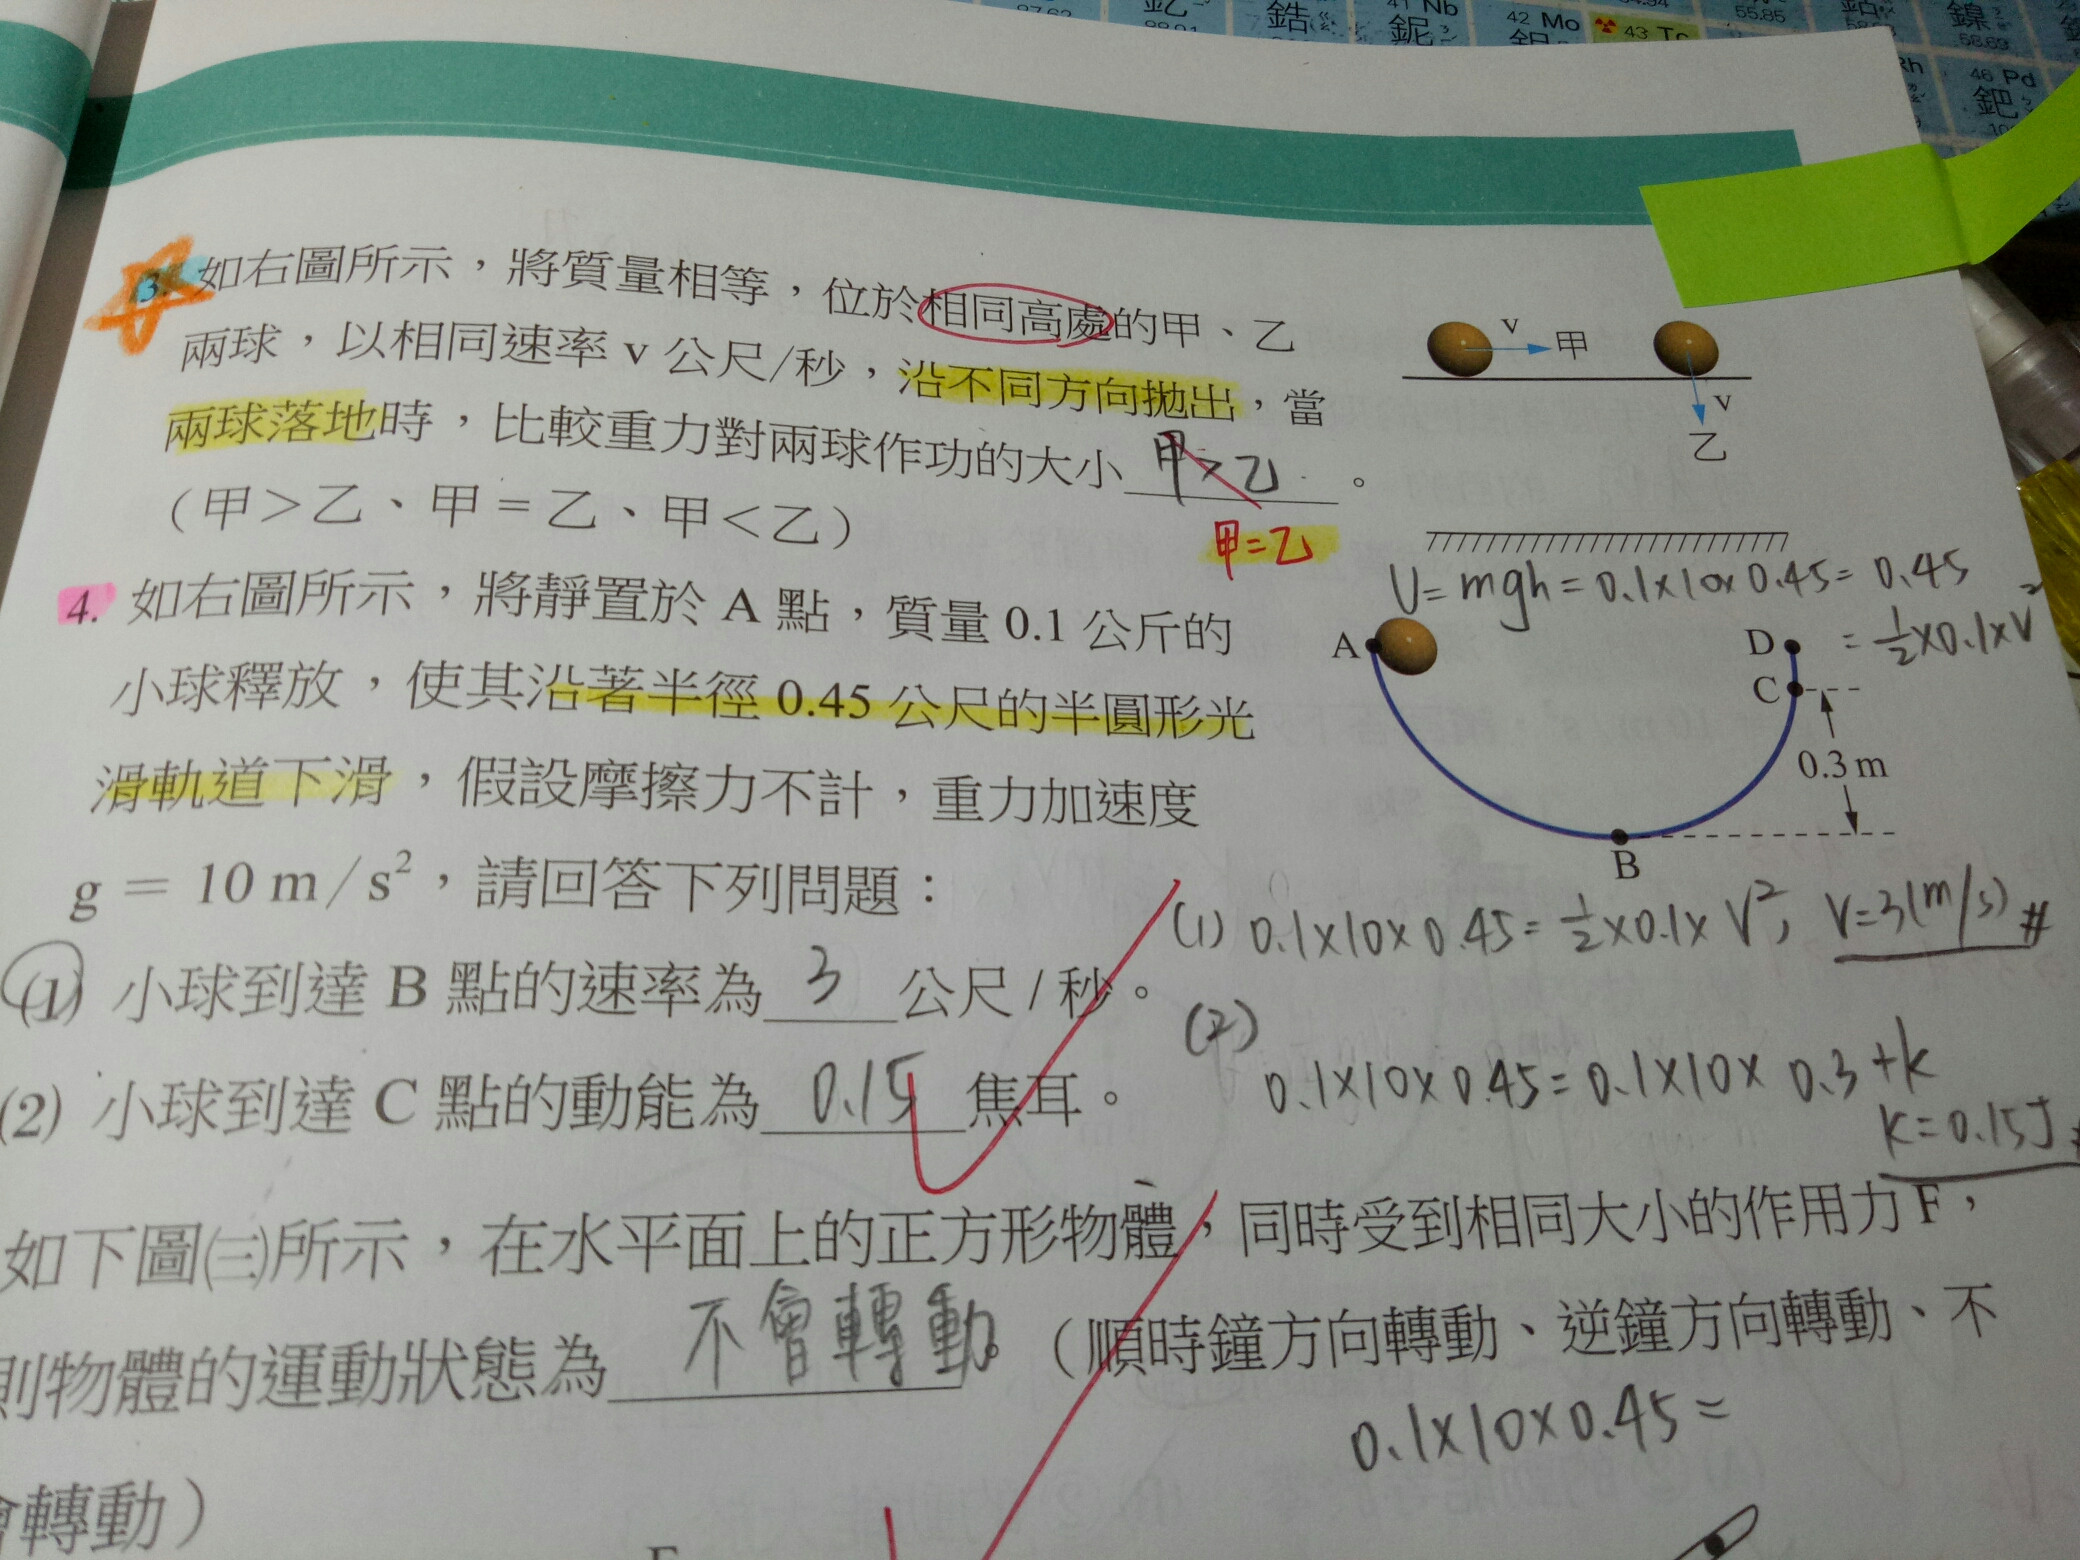 87.62
釔
88.91
鋯
41 Nb
鈮
42 Mo
鉬
43 Tc
55.85
58.69
鎳
46 Pd
鈀
3. 如右圖所示，將質量相等，位於相同高處的甲、乙
兩球，以相同速率 v 公尺/秒，沿不同方向拋出，當
兩球落地時，比較重力對兩球作功的大小 甲>乙 。
甲=乙
（甲＞乙、甲＝乙、甲＜乙）
v
甲
v
乙
4. 如右圖所示，將靜置於 A 點，質量 0.1 公斤的
小球釋放，使其沿著半徑 0.45 公尺的半圓形光
滑軌道下滑，假設摩擦力不計，重力加速度
g = 10 m/s²，請回答下列問題：
U=mgh=0.1×10×0.45=0.45
=½×0.1×V²
A
D
C
0.3 m
B
(1) 小球到達 B 點的速率為 3 公尺/秒。
(1) 0.1×10×0.45=½×0.1×V², V=3(m/s)#
(2) 小球到達 C 點的動能為 0.15 焦耳。
(2)
0.1×10×0.45=0.1×10×0.3+k
k=0.15J #
如下圖㈢所示，在水平面上的正方形物體，同時受到相同大小的作用力 F，
則物體的運動狀態為 不會轉動。（順時鐘方向轉動、逆鐘方向轉動、不
會轉動）
0.1×10×0.45=
F